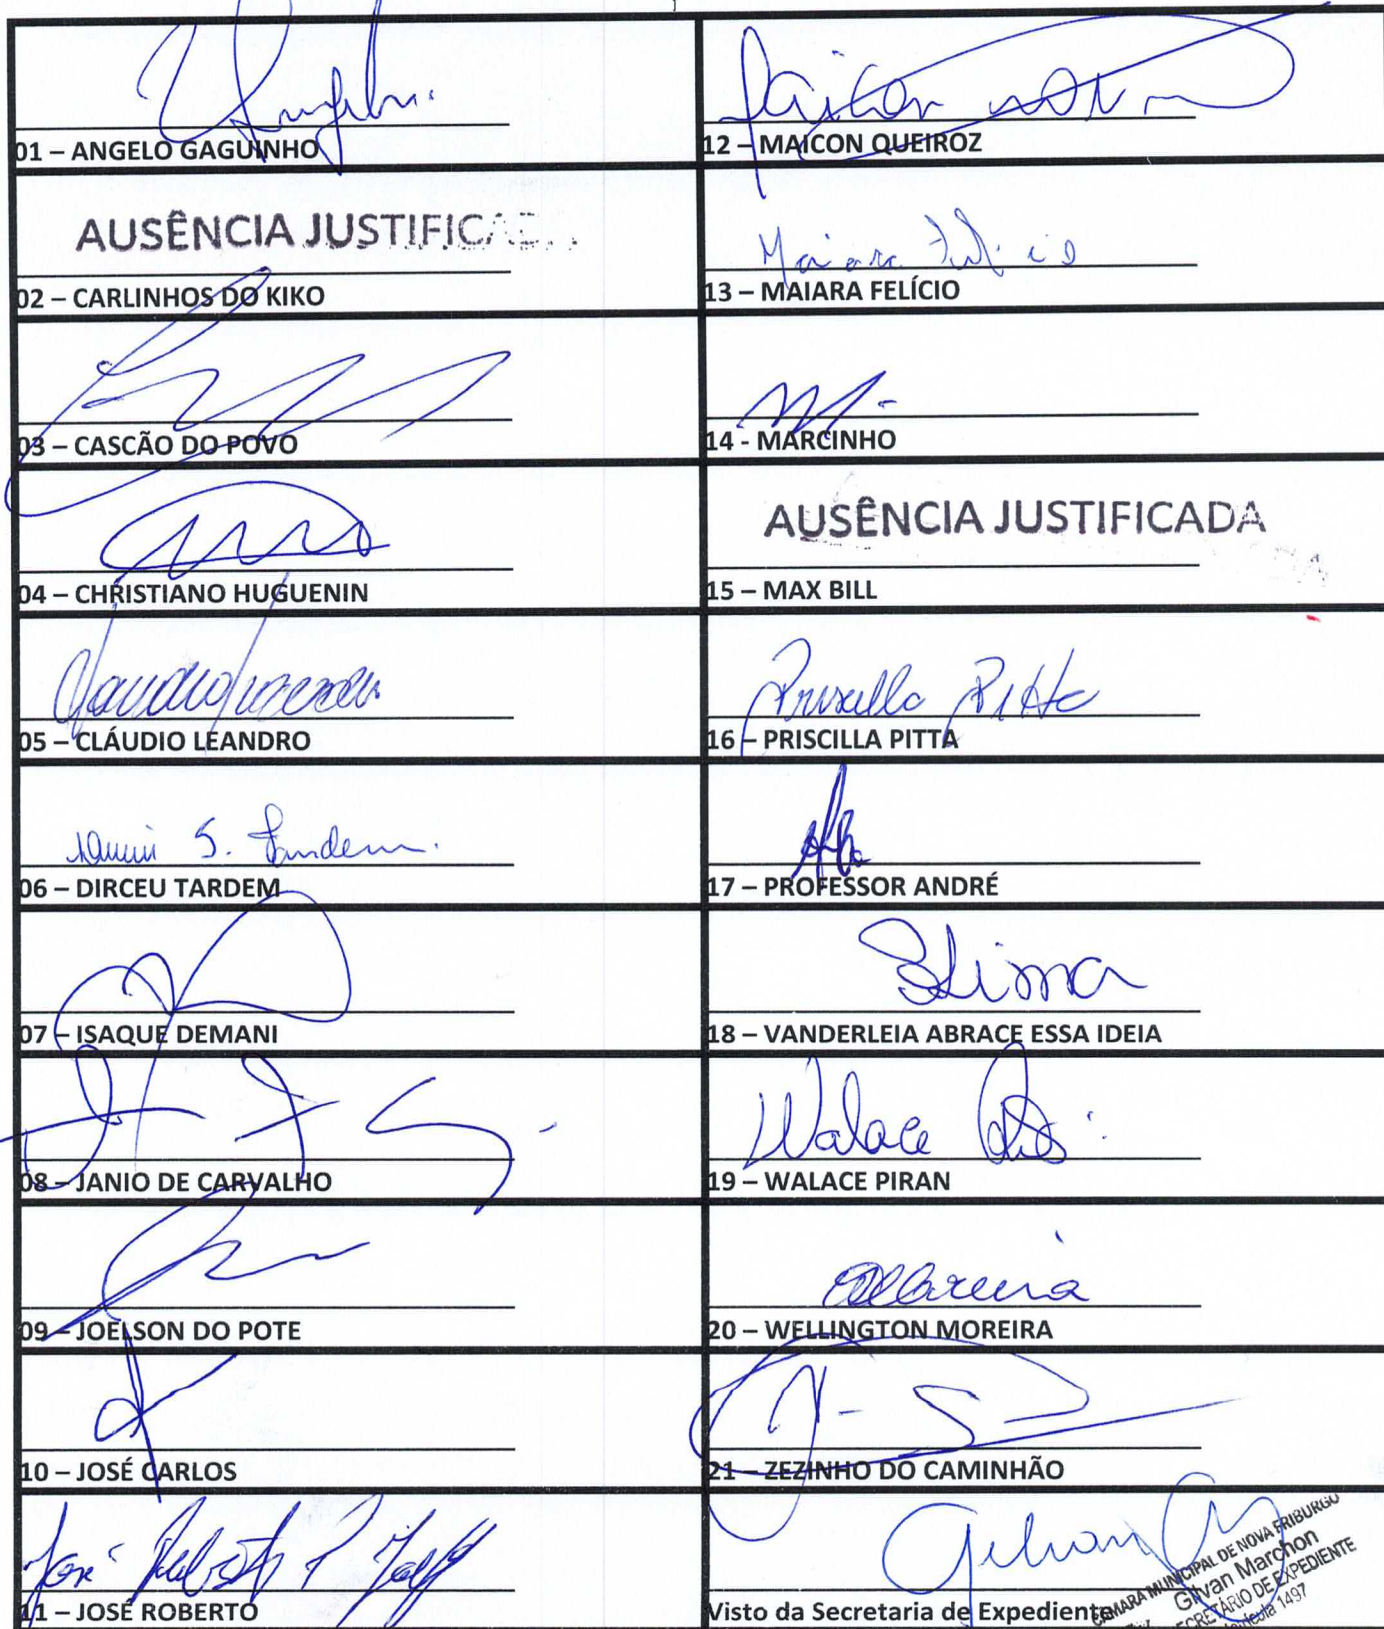 01 – ANGELO GAGUINHO
AUSÊNCIA JUSTIFICADA
02 – CARLINHOS DO KIKO
03 – CASCÃO DO POVO
04 – CHRISTIANO HUGUENIN
05 – CLÁUDIO LEANDRO
06 – DIRCEU TARDEM
07 – ISAQUE DEMANI
08 – JANIO DE CARVALHO
09 – JOELSON DO POTE
10 – JOSÉ CARLOS
José Roberto
11 – JOSÉ ROBERTO
Maicon
12 – MAICON QUEIROZ
Maiara Felício
13 – MAIARA FELÍCIO
14 - MARCINHO
AUSÊNCIA JUSTIFICADA
15 – MAX BILL
Priscilla Pitta
16 – PRISCILLA PITTA
17 – PROFESSOR ANDRÉ
Lima
18 – VANDERLEIA ABRACE ESSA IDEIA
Walace
19 – WALACE PIRAN
20 – WELLINGTON MOREIRA
21 – ZEZINHO DO CAMINHÃO
Gilvan
CÂMARA MUNICIPAL DE NOVA FRIBURGO
Gilvan Marchon
SECRETÁRIO DE EXPEDIENTE
Matrícula 1497
Visto da Secretaria de Expediente